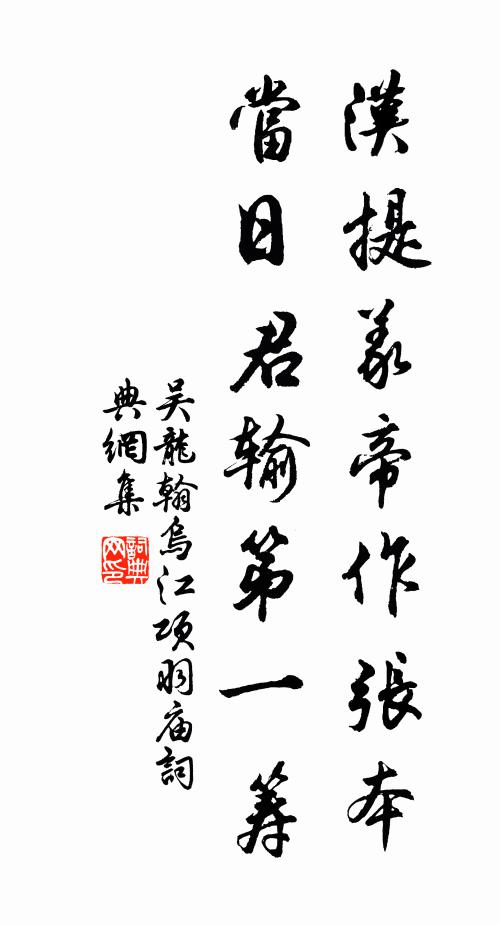 漢提義帝作張本
當日君輸第一筹
吴龍翰烏江項羽庙詞
典網集
詞典
网印